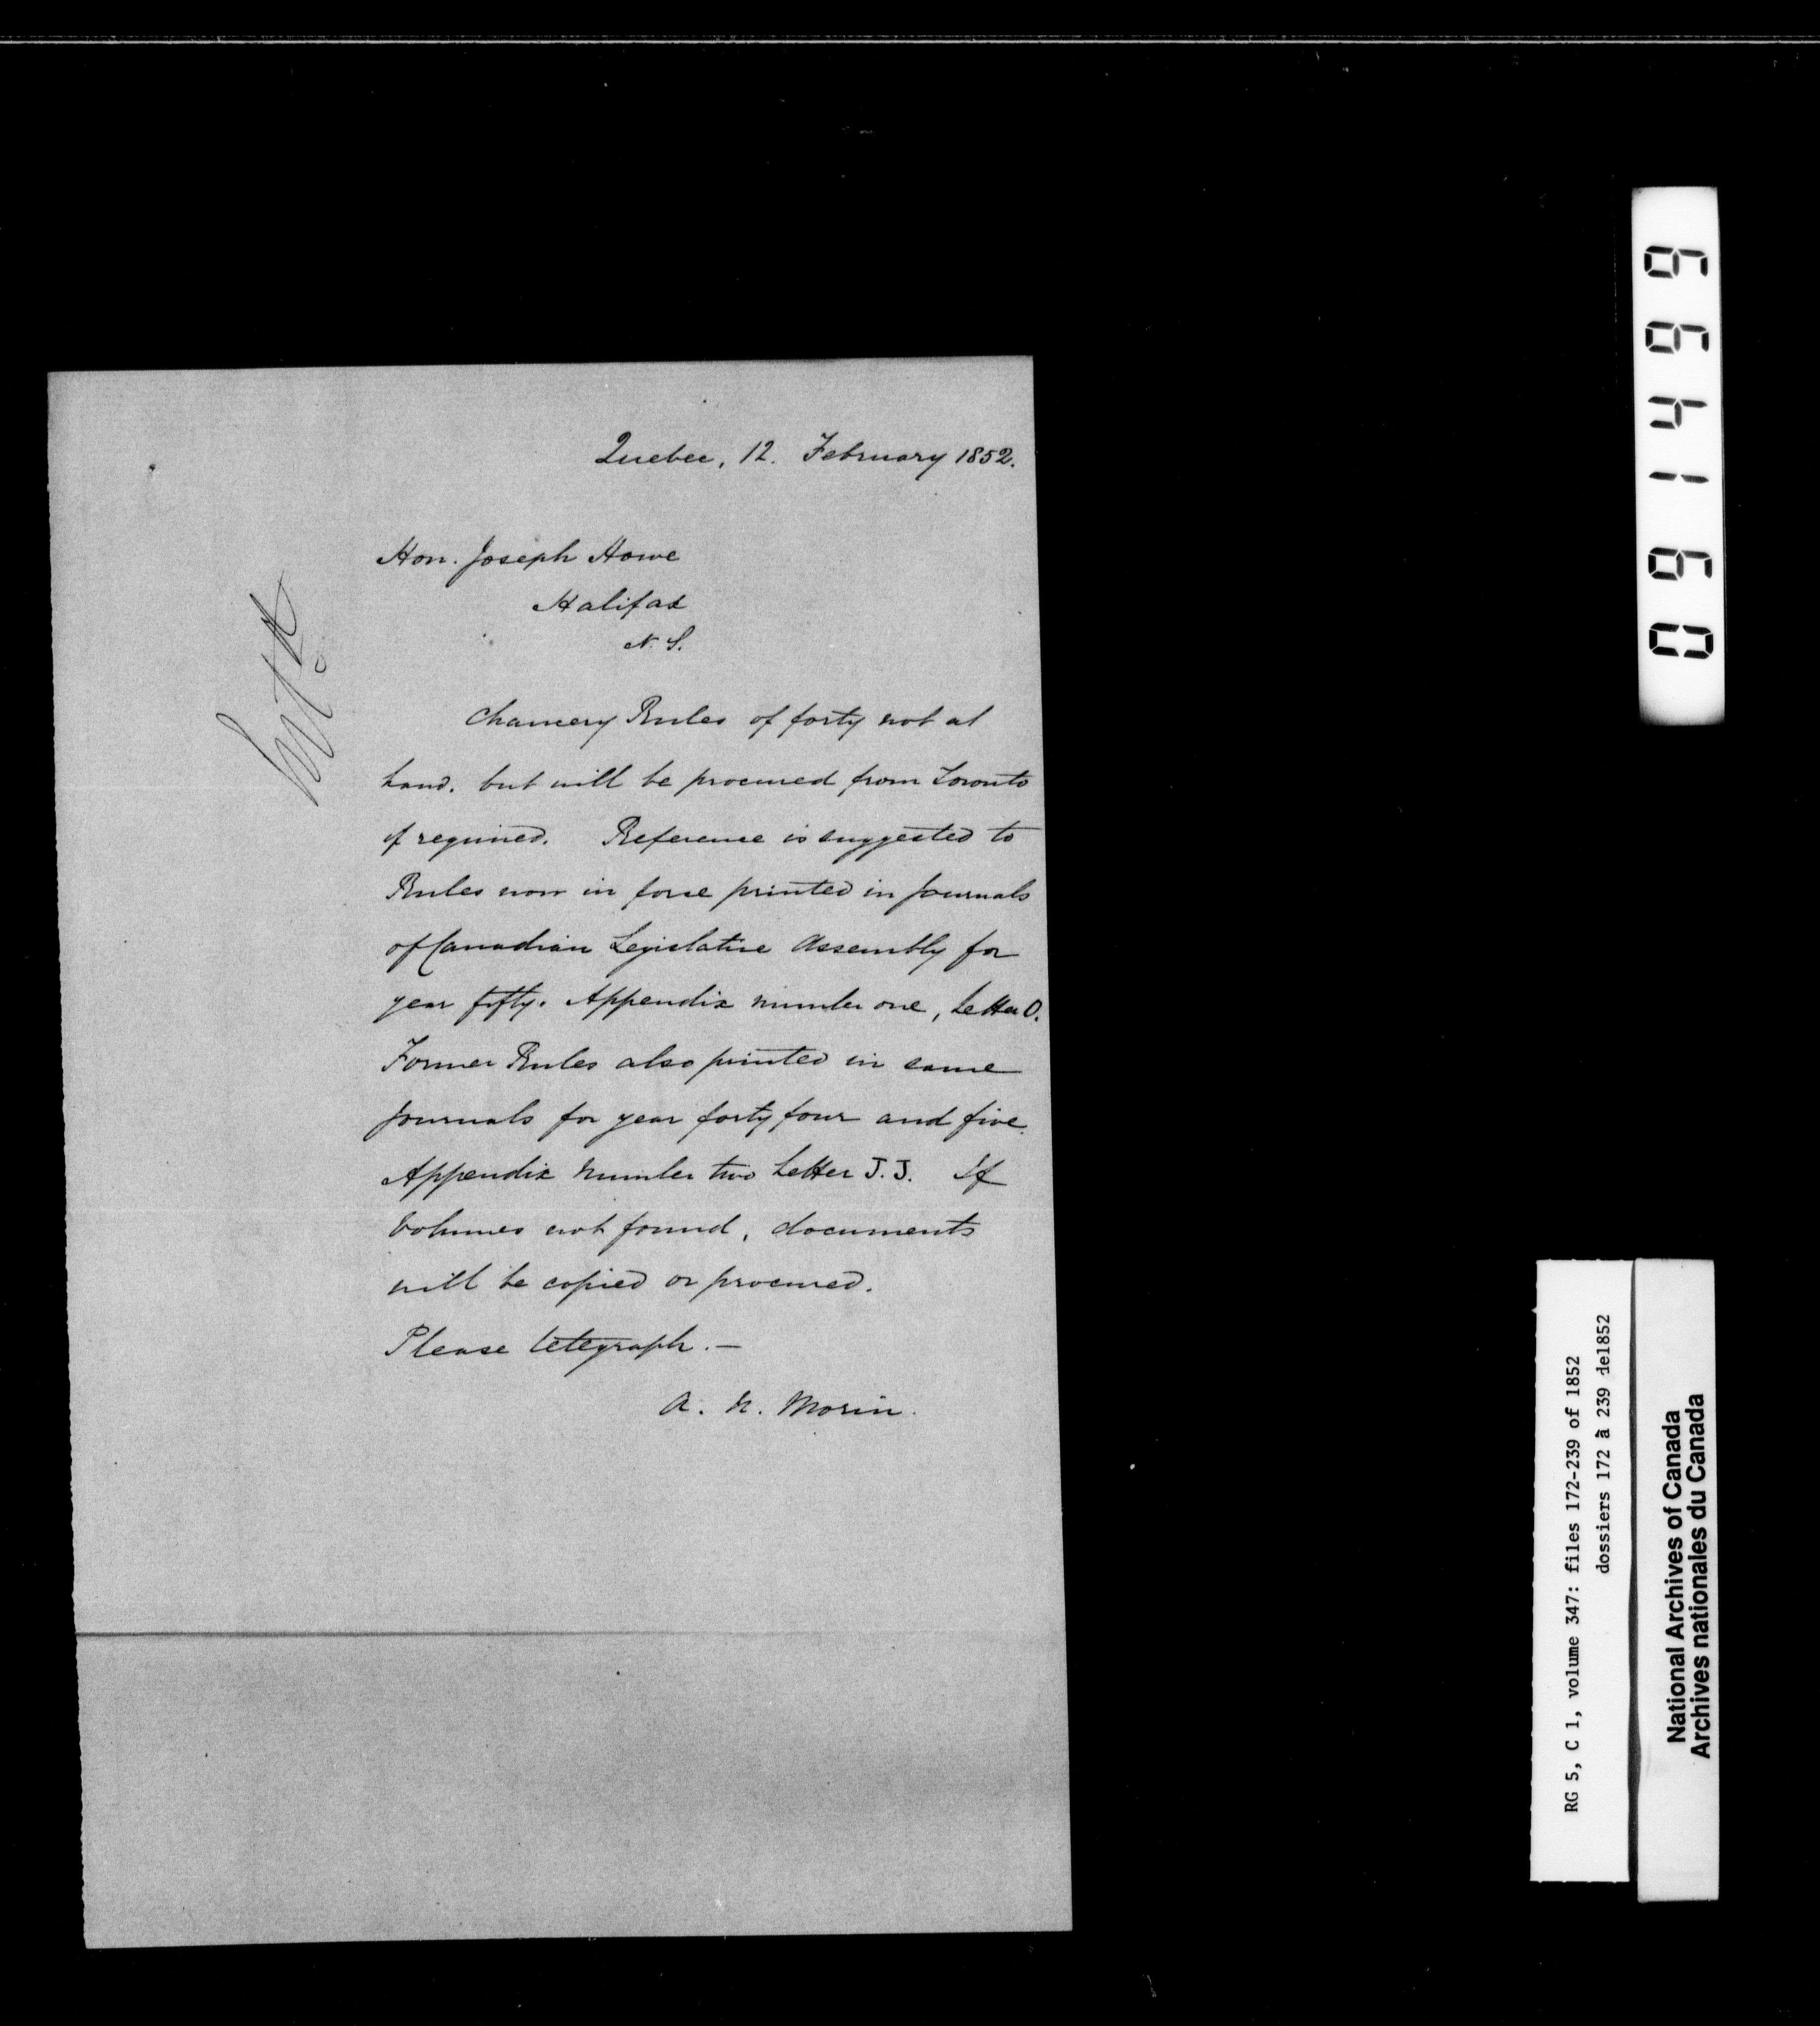 Quebec, 12. February 1852.
Hon. Joseph Howe
Halifax
N. S.
Chancery Rules of forty not at
hand. but will be procured from Toronto
if required. Reference is suggested to
Rules now in force printed in Journals
of Canadian Legislative Assembly for
year fifty. Appendix number one, Letter O.
Former Rules also printed in same
Journals for year forty four and five.
Appendix number two Letter J.J. If
Volumes not found, documents
will be copied or procured.
Please telegraph. —
A. N. Morin.
691499
RG 5, C 1, volume 347: files 172-239 of 1852
dossiers 172 à 239 de1852
National Archives of Canada
Archives nationales du Canada